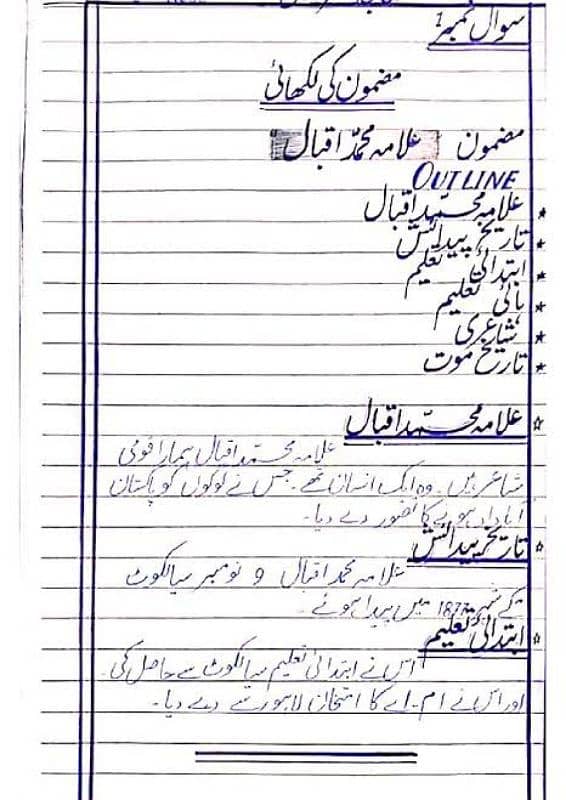 سوال نمبر 1
مضمون کی لکھائی
مضمون علامہ محمّد اقبال
OUTLINE
* علامہ محمّد اقبال
* تاریخ پیدائش
* ابتدائی تعلیم
* ہائی تعلیم
* شاعری
* تاریخ موت
* علامہ محمّد اقبال
علامہ محمّد اقبال ہمارا قومی
شاعر ہیں۔ وہ ایک انسان تھے۔ جس نے لوگوں کو پاکستان
ہونے کا تصور دے دیا۔
* تاریخ پیدائش
علامہ محمد اقبال 9 نومبر سیالکوٹ
کے شہر 1877 میں پیدا ہوئے۔
* ابتدائی تعلیم
اس نے ابتدائی تعلیم سیالکوٹ سے حاصل کی۔
اور اس نے ام۔اے کا امتحان لاہور سے دے دیا۔